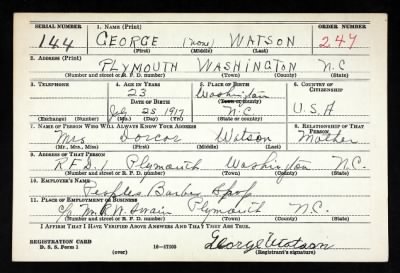 SERIAL NUMBER 1. NAME (Print) ORDER NUMBER
144 GEORGE (none) WATSON 247
(First) (Middle) (Last)
2. ADDRESS (Print)
PLYMOUTH WASHINGTON N.C
(Number and street or R. F. D. number) (Town) (County) (State)
3. TELEPHONE 4. AGE IN YEARS 5. PLACE OF BIRTH 6. COUNTRY OF CITIZENSHIP
23 Washington
DATE OF BIRTH (Town or county)
July 25 1917 N.C. U.S.A
(Exchange) (No.) (Mo.) (Day) (Yr.) (State or country)
7. NAME OF PERSON WHO WILL ALWAYS KNOW YOUR ADDRESS 8. RELATIONSHIP OF THAT PERSON
Mrs Watson Mother
(Mr., Mrs., Miss) (First) (Middle) (Last)
9. ADDRESS OF THAT PERSON
R.F.D. Plymouth Washington N.C.
(Number and street or R. F. D. number) (Town) (County) (State)
10. EMPLOYER'S NAME
Peoples Barber Shop
11. PLACE OF EMPLOYMENT OR BUSINESS
Swain Plymouth N.C.
(Number and street or R. F. D. number) (Town) (County) (State)
I AFFIRM THAT I HAVE VERIFIED ABOVE ANSWERS AND THAT THEY ARE TRUE.
REGISTRATION CARD George Watson
D. S. S. Form 1 (over) 16—17105 (Registrant's signature)